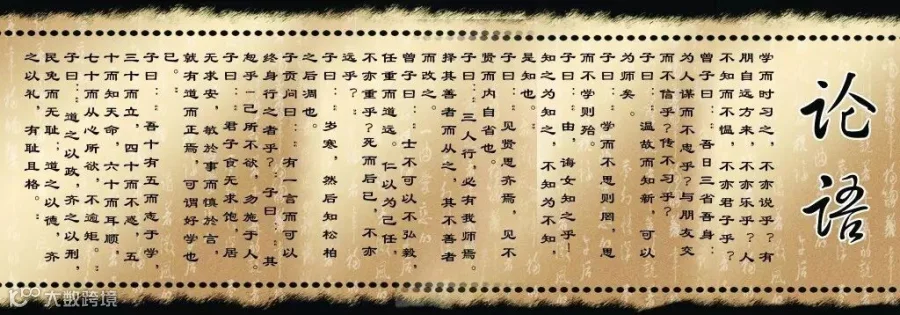 论语
学而时习之,不亦说乎?有
朋自远方来,不亦乐乎?人
不知而不愠,不亦君子乎?
曾子曰:吾日三省吾身:
为人谋而不忠乎?与朋友交
而不信乎?传不习乎?
子曰:温故而知新,可以
为师矣。
子曰:学而不思则罔,思
而不学则殆。
子曰:由,诲女知之乎!
知之为知之,不知为不知,
是知也。
子曰:见贤思齐焉,见不
贤而内自省也。
子曰:三人行,必有我师焉。
择其善者而从之,其不善者
而改之。
曾子曰:士不可以不弘毅,
任重而道远。仁以为己任
不亦重乎?死而后已,不亦
远乎?
子曰:岁寒,然后知松柏
之后凋也。
子贡问曰:有一言而可以
终身行之者乎?子曰:其
恕乎!己所不欲,勿施于人。
子曰:君子食无求饱,居
无求安,敏於事而慎於言,
就有道而正焉,可谓好学也
已。
子曰:吾十有五而志于学
三十而立,四十而不惑,五
十而知天命,六十而耳顺,
七十而从心所欲,不逾矩。
子曰:道之以政,齐之以刑,
民免而无耻;道之以德,齐
之以礼,有耻且格。
大数跨境